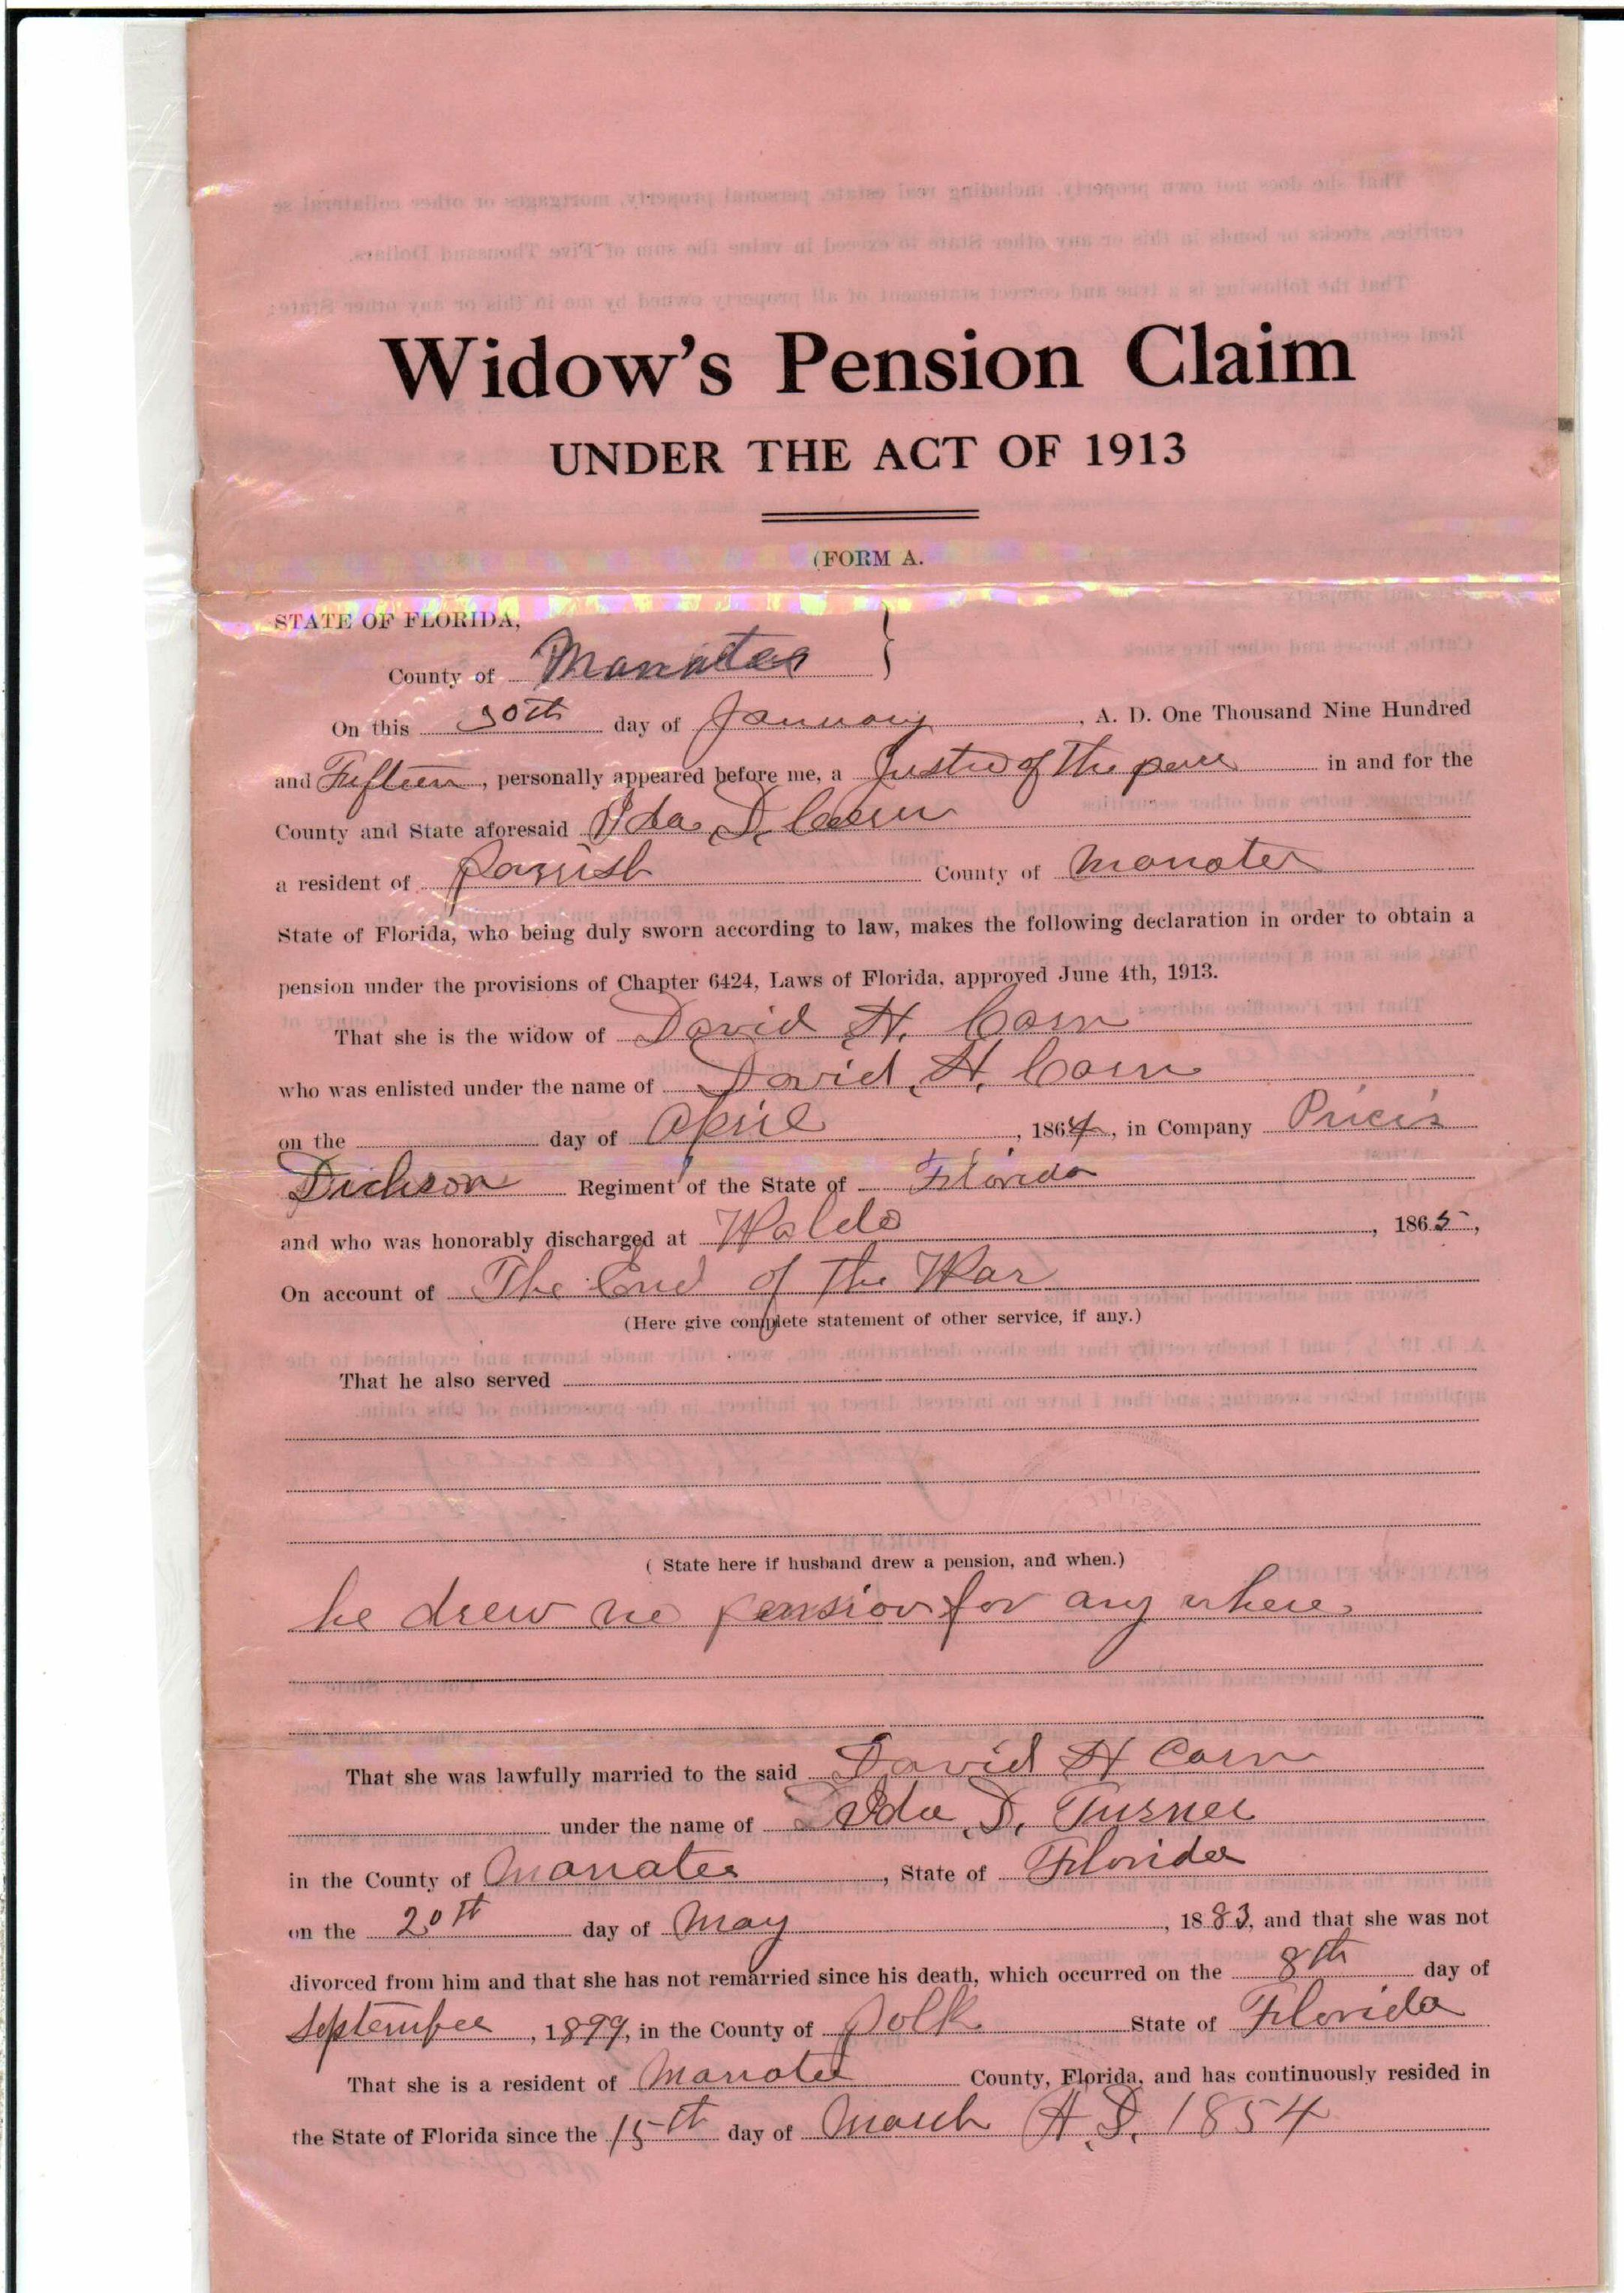 Widow's Pension Claim
UNDER THE ACT OF 1913
(FORM A.
STATE OF FLORIDA,
County of Manatee }
On this 30th day of January, A. D. One Thousand Nine Hundred
and Fifteen, personally appeared before me, a Justice of the peace in and for the
County and State aforesaid Ida D. Carn
a resident of Parrish County of Manatee
State of Florida, who being duly sworn according to law, makes the following declaration in order to obtain a
pension under the provisions of Chapter 6424, Laws of Florida, approved June 4th, 1913.
That she is the widow of David H. Carn
who was enlisted under the name of David H. Carn
on the day of April, 1864, in Company Price's
Dickson Regiment of the State of Florida
and who was honorably discharged at Waldo, 1865,
On account of The End of the War
(Here give complete statement of other service, if any.)
That he also served
( State here if husband drew a pension, and when.)
he drew no pension for any where
That she was lawfully married to the said David H Carn
under the name of Ida D. Turner
in the County of Manatee, State of Florida
on the 20th day of May, 1883, and that she was not
divorced from him and that she has not remarried since his death, which occurred on the 8th day of
September, 1899, in the County of Polk State of Florida
That she is a resident of Manatee County, Florida, and has continuously resided in
the State of Florida since the 15th day of March A.D. 1854